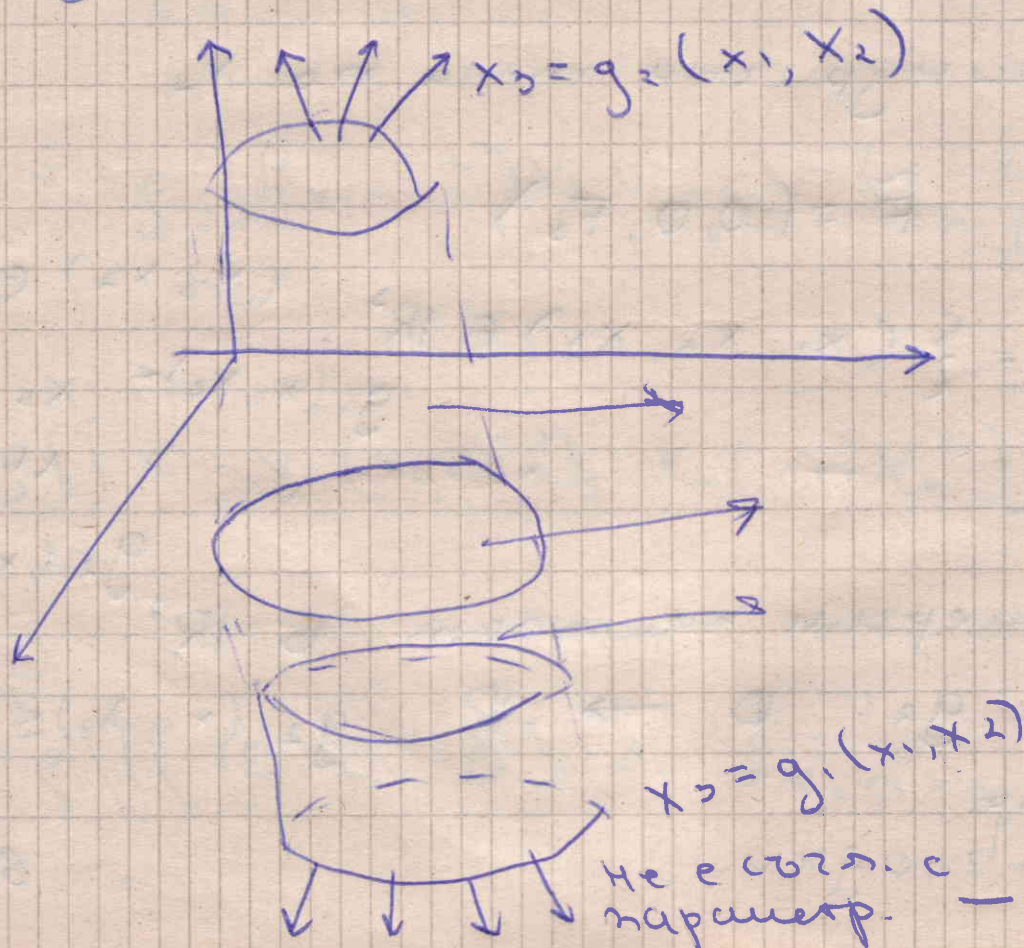 x₃ = g₂ (x₁, x₂)
x₃ = g₁ (x₁, x₂)
не е съгл. с
параметр. —